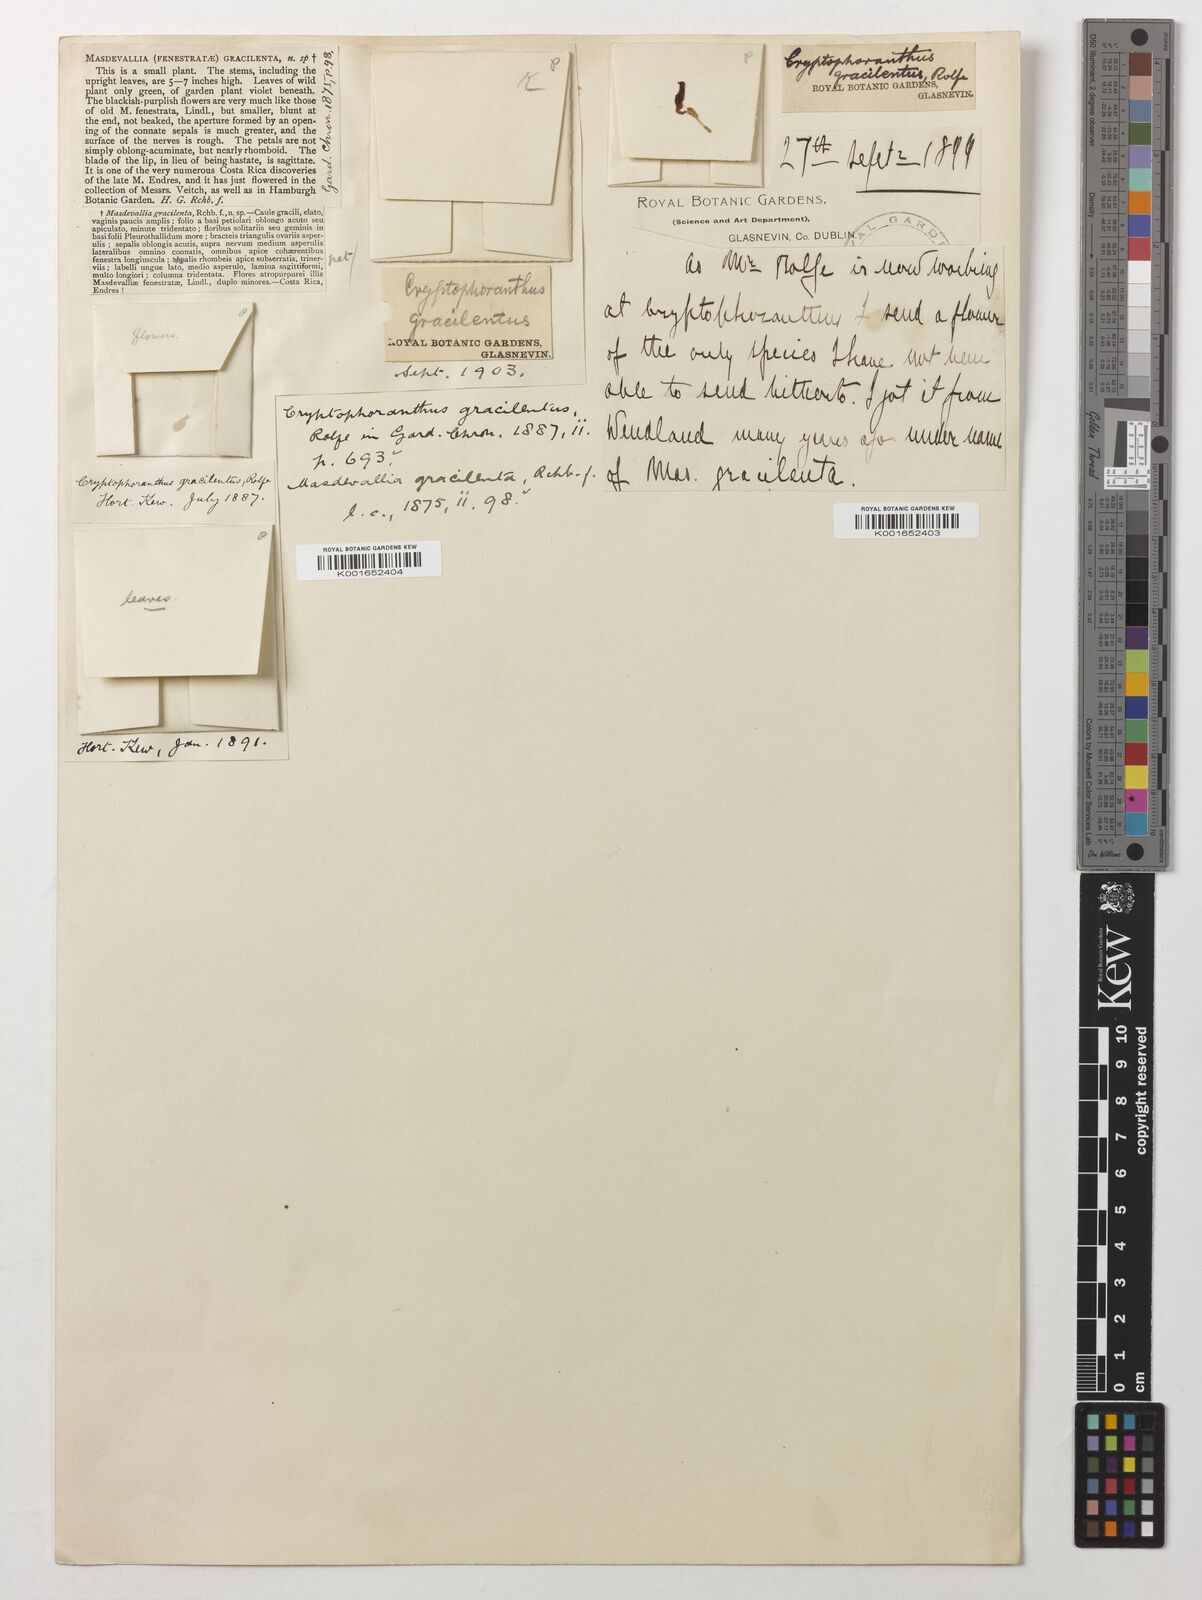 MASDEVALLIA (FENESTRATÆ) GRACILENTA, n. sp †
This is a small plant. The stems, including the
upright leaves, are 5—7 inches high. Leaves of wild
plant only green, of garden plant violet beneath.
The blackish-purplish flowers are very much like those
of old M. fenestrata, Lindl., but smaller, blunt at
the end, not beaked, the aperture formed by an open-
ing of the connate sepals is much greater, and the
surface of the nerves is rough. The petals are not
simply oblong-acuminate, but nearly rhomboid. The
blade of the lip, in lieu of being hastate, is sagittate.
It is one of the very numerous Costa Rica discoveries
of the late M. Endres, and it has just flowered in the
collection of Messrs. Veitch, as well as in Hamburgh
Botanic Garden. H. G. Rchb. f.
Gard. Chron. 1875, p. 98,
† Masdevallia gracilenta, Rchb. f., n. sp.—Caule gracili, elato,
vaginis paucis amplis; folio a basi petiolari oblongo acuto seu
apiculato, minute tridentato; floribus solitariis seu geminis in
basi folii Pleurothallidum more; bracteis triangulis ovariis asper-
ulis; sepalis oblongis acutis, supra nervum medium asperulis
lateralibus omnino connatis, omnibus apice cohærentibus
fenestra longiuscula; sepalis rhombeis apice subserratis, triner-
viis; labelli ungue lato, medio asperulo, lamina sagittiformi,
multo longiori; columna tridentata. Flores atropurpurei illis
Masdevalliæ fenestratæ, Lindl., duplo minores.—Costa Rica,
Endres!
pet/
flowers
Cryptophoranthus gracilentus, Rolfe
Hort. Kew. July 1887.
leaves.
Hort. Kew, Jan. 1891.
K
Cryptophoranthus
gracilentus
ROYAL BOTANIC GARDENS,
GLASNEVIN.
Sept. 1903.
Cryptophoranthus gracilentus,
Rolfe in Gard. Chron. 1887, ii.
p. 693.
Masdevallia gracilenta, Rchb. f.
l. c., 1875, ii. 98.
ROYAL BOTANIC GARDENS KEW
K001652404
Cryptophoranthus
gracilentus, Rolfe
ROYAL BOTANIC GARDENS,
GLASNEVIN.
27th Septr 1899
ROYAL BOTANIC GARDENS,
(Science and Art Department),
GLASNEVIN, Co. DUBLIN.
As Mr Rolfe is now working
at Cryptophoranthus I send a flower
of the only species I have not been
able to send hitherto. I got it from
Wendland many years ago under name
of Mas. gracilenta.
ROYAL BOTANIC GARDENS KEW
K001652403
Golden Thread
Colors by Munsell Color Services Lab
Don Williams
Royal Botanic Gardens
Kew
0 1 2 3 4 5 6 7 8 9 10
cm
copyright reserved